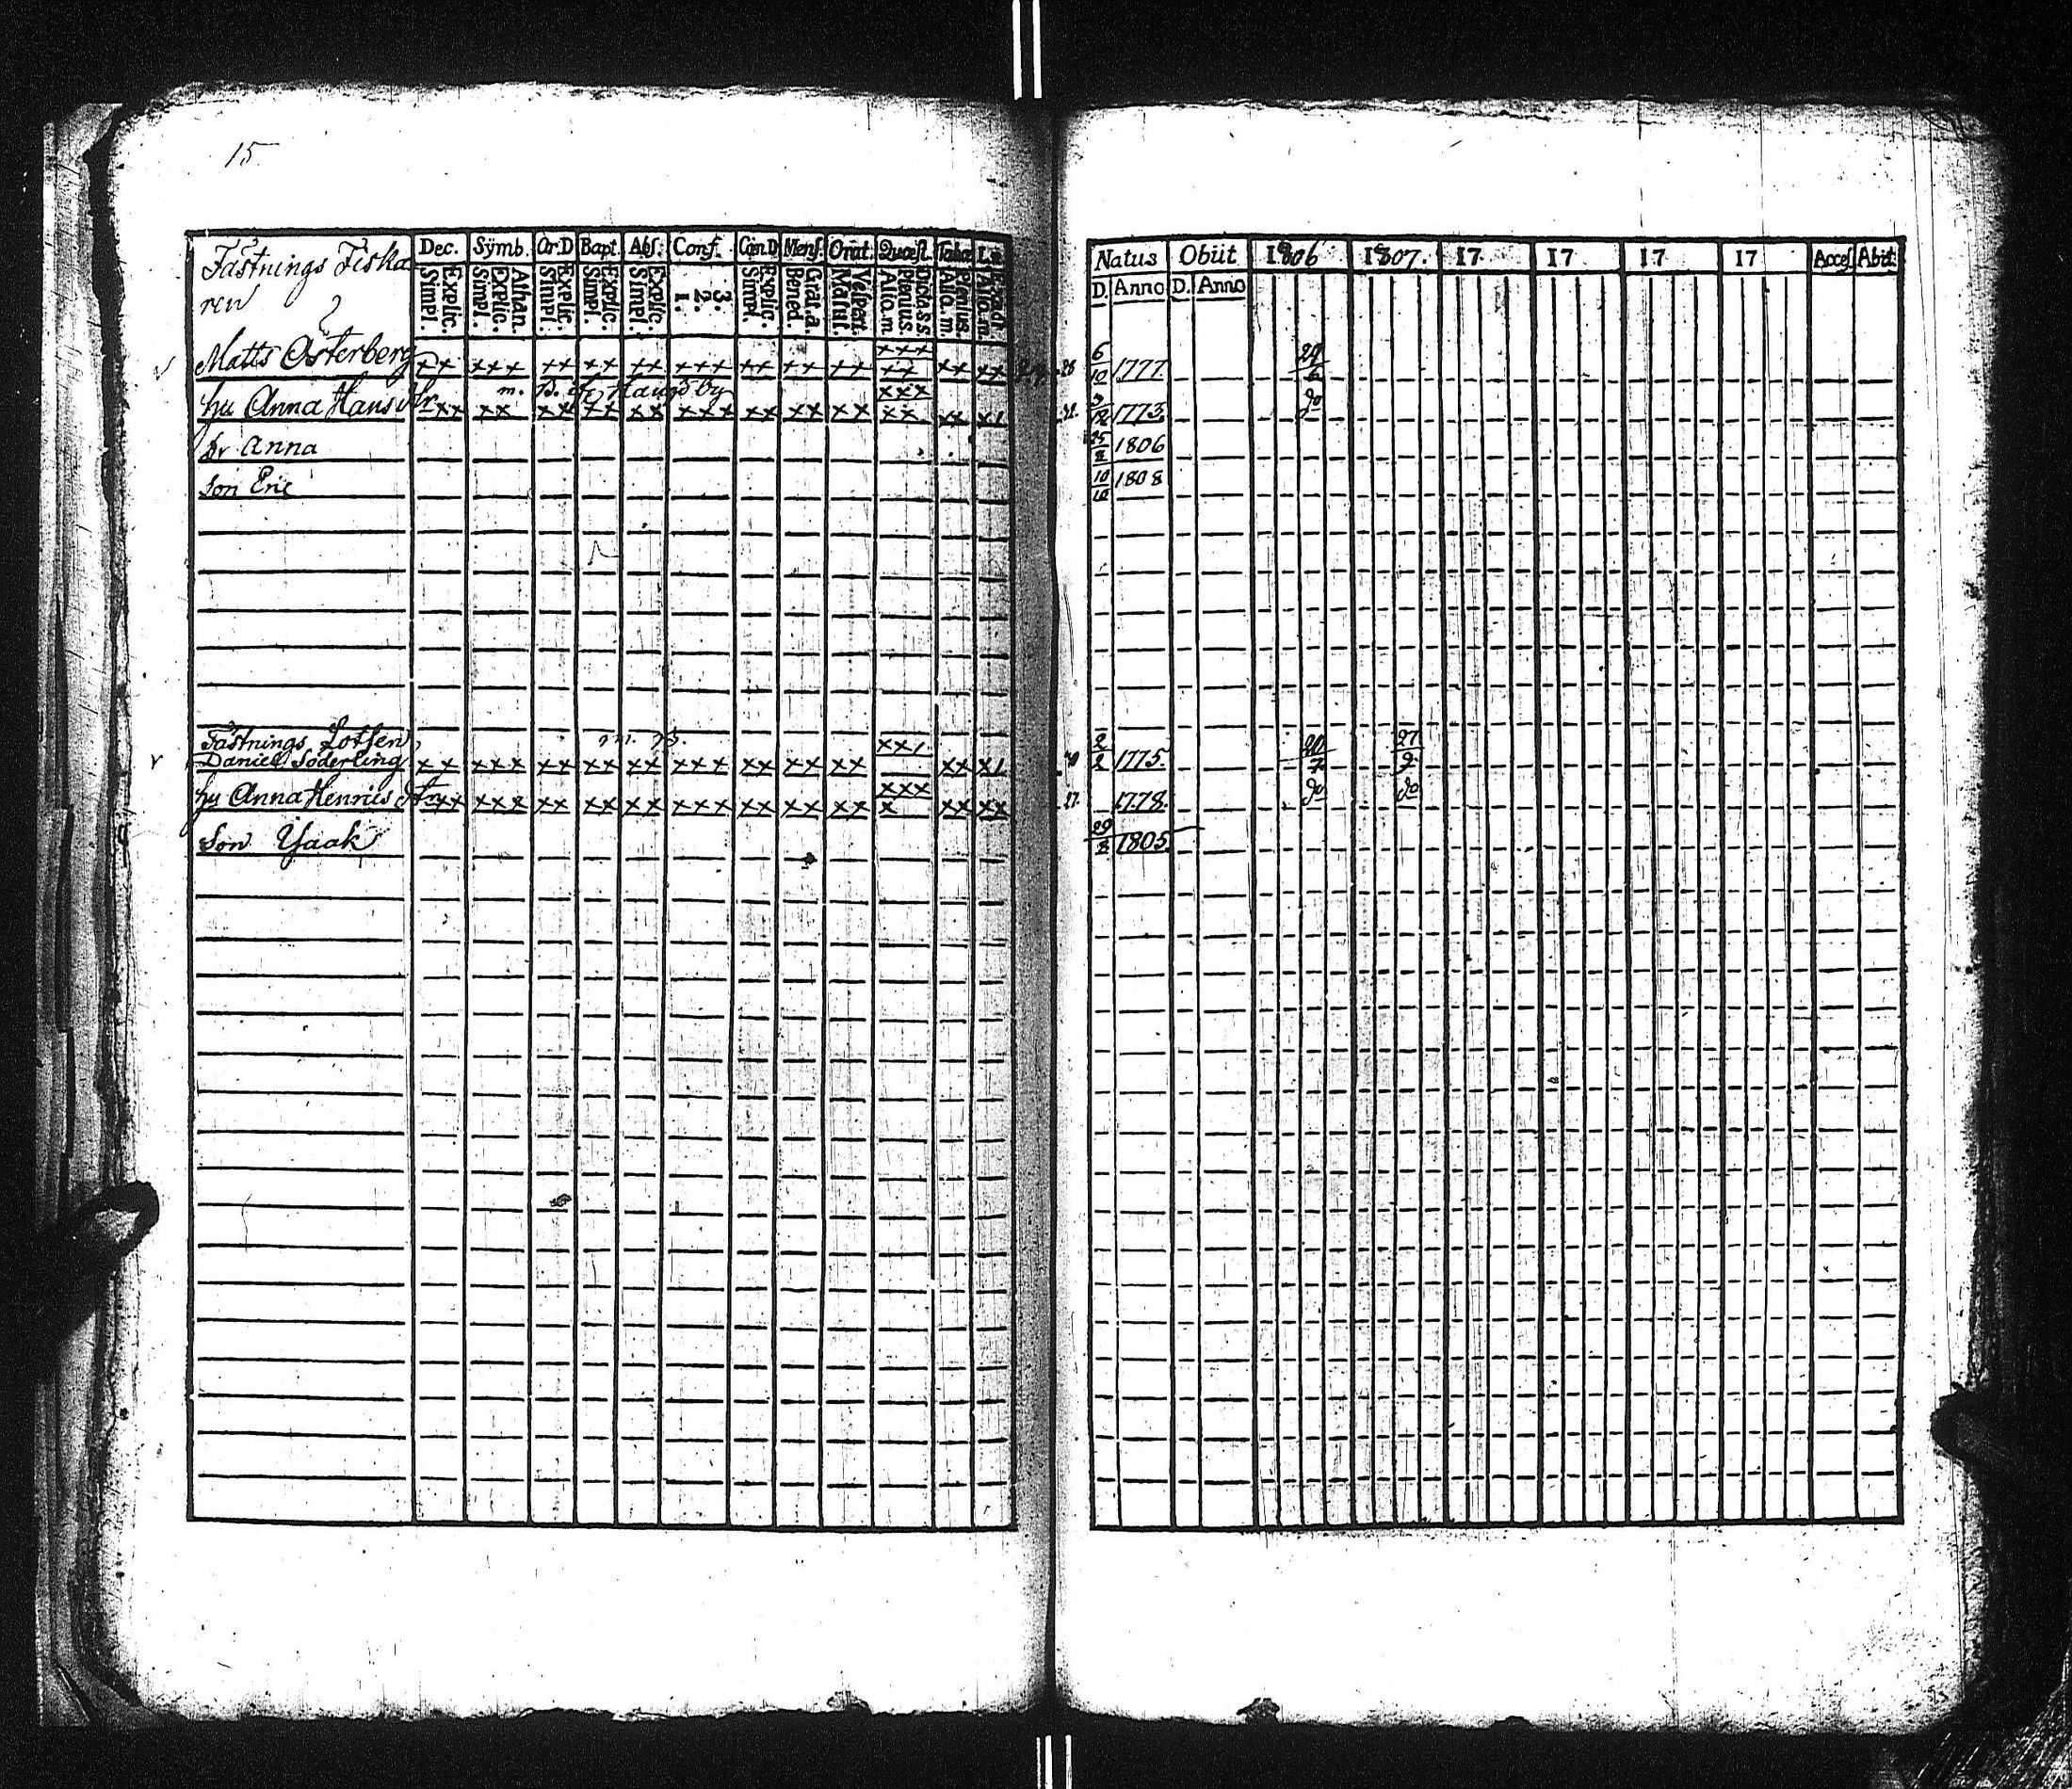 15
Fästnings Fiska
ren
Dec. Sÿmb. Or D Bapt. Abſ. Conf. Cœn.D Menſ. Orat. Quæſt. Taba
Explic. Simpl. Athan. Explic. Simpl. Explic. Simpl. Explic. Simpl. Explic. Simpl. 3. 2. 1. Explic. Simpl. Grat.a Bened. Veſpert. Matut. Dicta.s.s. Plenius. Alio.m. Plenius. Alio.m. Alio.m.
Natus Obiit 1806 1807. 17 17 17 17 Acceſ Abit
D. Anno D. Anno
Matts Österberg xx xxx xx xx xx xxx xx xx xx xxx xx xx xx 28 6/10 1777 29/6
m. B. af Hawsby
hu Anna Hans dr xx xx xx xx xx xxx xx xx xx xxx xx xx xx 1773 do
dr Anna 1806
Son Eric 10/10 1808
Fästnings Lotsen m. B.
Daniel Söderling xx xxx xx xx xx xxx xx xx xx xxx xx xx 2/2 1775. 20/7 27/9
hu Anna Henrics dr xx xxx xx xx xx xxx xx xx xx xxx x xx xx 27. 1778. do do
Son Isaak 1805